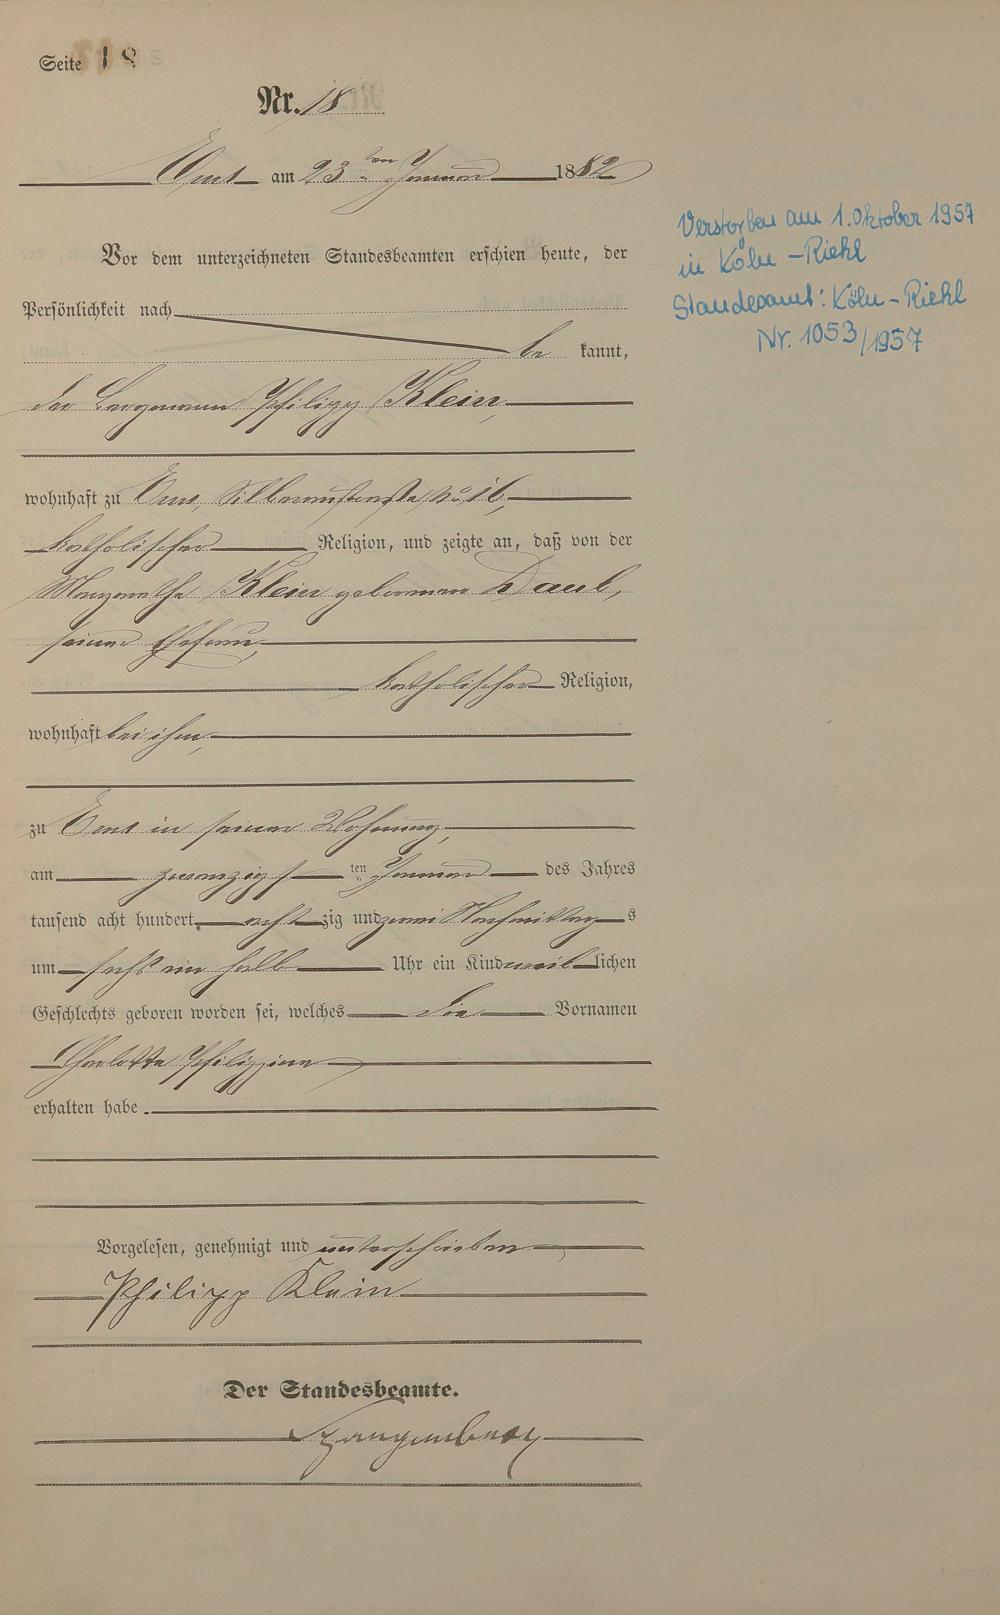 Seite 18
Nr. 18
Ems am 23ten Januar 1882
Verstorben am 1. Oktober 1957
in Köln - Riehl
Standesamt: Köln - Riehl
Nr. 1053/1957
Vor dem unterzeichneten Standesbeamten erschien heute, der
Persönlichkeit nach
be kannt,
der Bergmann Philipp Klein,
wohnhaft zu Ems, No 16,
katholischer Religion, und zeigte an, daß von der
Margarethe Klein geborenen Daub,
seiner Ehefrau,
katholischer Religion,
wohnhaft bei ihm,
zu Ems in seiner Wohnung,
am zwanzigsten Januar des Jahres
tausend acht hundert achtzig und zwei Nachmittags
um sechs ein halb Uhr ein Kind weiblichen
Geschlechts geboren worden sei, welches die Vornamen
Charlotte Philippine
erhalten habe.
Vorgelesen, genehmigt und unterschrieben
Philipp Klein
Der Standesbeamte.